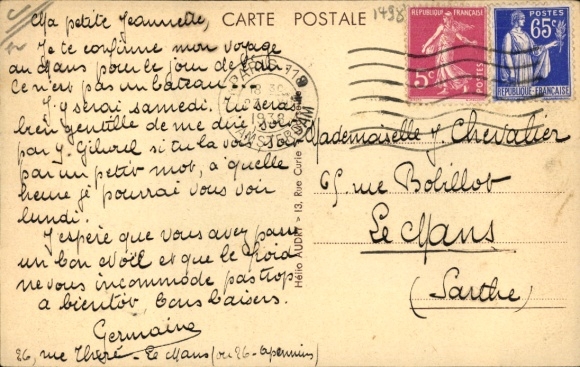 CARTE POSTALE
1498
RÉPUBLIQUE FRANÇAISE
5c
POSTES
POSTES
65c
RÉPUBLIQUE FRANÇAISE
PARIS 118
18 30
1938
R. AMSTERDAM
Ma petite Jeannette,
Je te confirme mon voyage
au Mans pour le jour de l'an
Ce n'est pas un bateau...
J'y serai samedi. Tu serais
bien gentille de me dire, soit
par J. Gilouil si tu la vois, soit
par un petit mot, à quelle
heure je pourrai vous voir
lundi.
J'espère que vous avez passé
un bon Noël et que le froid
ne vous incommode pas trop
a bientôt, bons baisers.
Germaine
26, rue - Le Mans (ou 26 -
Hélio AUDRY - 13, Rue Curie
Mademoiselle J. Chevalier
65, rue Bobillot
Le Mans
(Sarthe)